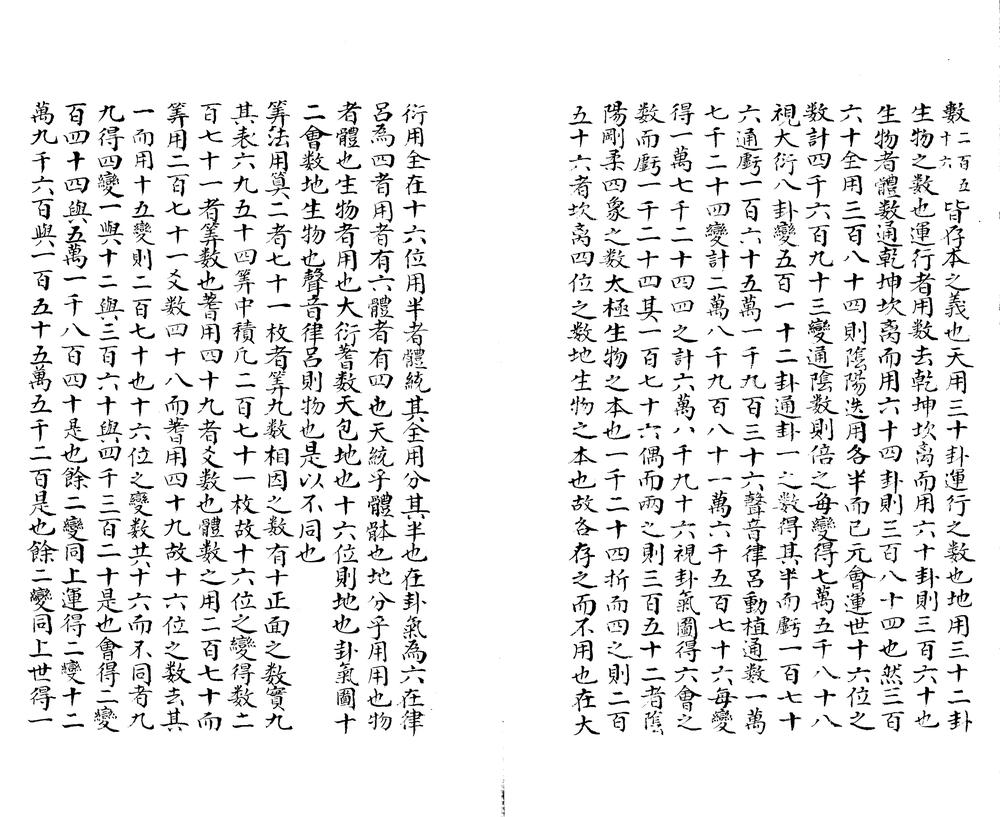 數二百五十六皆存本之義也天用三十卦運行之數也地用三十二卦
生物之數也運行者用數去乾坤坎离而用六十卦則三百六十也
生物者體數通乾坤坎离而用六十四卦則三百八十四也然三百
六十全用三百八十四則隂陽迭用各半而已元會運世十六位之
數計四千六百九十三變通隂數則倍之每變得七萬五千八十八
視大衍八卦變五百一十二卦通卦一之數得其半而虧一百七十
六通虧一百六十五萬一千九百三十六聲音律吕動植通數一萬
七千二十四變計二萬八千九百八十一萬六千五百七十六每變
得一萬七千二十四四之計六萬八千九十六視卦氣圖得六會之
數而虧一千二十四其一百七十六偶而兩之則三百五十二者隂
陽剛柔四象之數太極生物之本也一千二十四折而四之則二百
五十六者坎离四位之數地生物之本也故各存之而不用也在大
衍用全在十六位用半者體統其全用分其半也在卦氣為六在律
吕為四者用者有六體者有四也天統乎體體也地分乎用用也物
者體也生物者用也大衍蓍數天包地也十六位則地也卦氣圖十
二會數地生物也聲音律吕則物也是以不同也
筭法用筭二者七十一枚者筭九數相因之數有十正面之數實九
其表六九五十四筭中積凡二百七十一枚故十六位之變得數二
百七十一者筭數也蓍用四十九者爻數也體數之用二百七十而
筭用二百七十一爻數四十八而蓍用四十九故十六位之數去其
一而用十五變則二百七十也十六位之變數共十六而不同者九
九得四變一與十二與三百六十與四千三百二十是也會得二變
百四十四與五萬一千八百四十是也餘二變同上運得二變十二
萬九千六百與一百五十五萬五千二百是也餘二變同上世得一